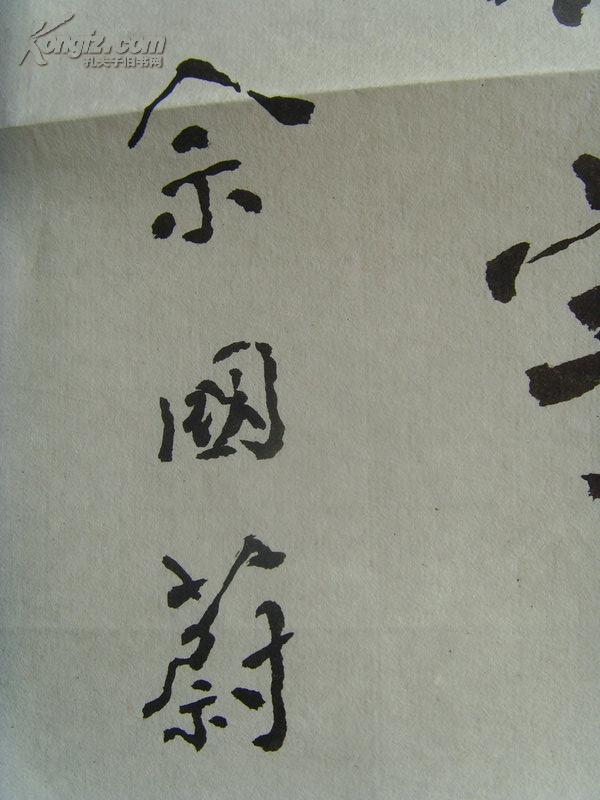 Kongfz.com
孔夫子旧书网
佘國蔚